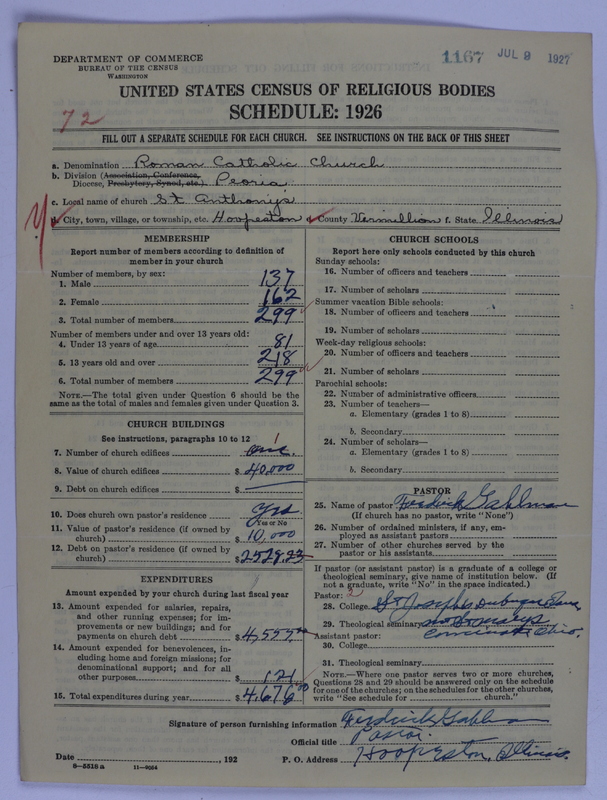 DEPARTMENT OF COMMERCE
BUREAU OF THE CENSUS
WASHINGTON
1167 JUL 9 1927
UNITED STATES CENSUS OF RELIGIOUS BODIES
SCHEDULE: 1926
72
FILL OUT A SEPARATE SCHEDULE FOR EACH CHURCH. SEE INSTRUCTIONS ON THE BACK OF THIS SHEET
a. Denomination Roman Catholic Church
b. Division (Association, Conference,
Diocese, Presbytery, Synod, etc.) Peoria
c. Local name of church St. Anthonys
d. City, town, village, or township, etc. Hoopeston e. County Vermillion f. State Illinois
MEMBERSHIP
Report number of members according to definition of
member in your church
Number of members, by sex:
1. Male 137
2. Female 162
3. Total number of members 299
Number of members under and over 13 years old:
4. Under 13 years of age 81
5. 13 years old and over 218
6. Total number of members 299
NOTE.—The total given under Question 6 should be
same as the total of males and females given under Question 3.
CHURCH BUILDINGS
See instructions, paragraphs 10 to 12
7. Number of church edifices one 1
8. Value of church edifices $ 40,000
9. Debt on church edifices $
10. Does church own pastor's residence yes
Yes or No
11. Value of pastor's residence (if owned by
church) $ 10,000
12. Debt on pastor's residence (if owned by
church) $ 2528.23
EXPENDITURES
Amount expended by your church during last fiscal year
13. Amount expended for salaries, repairs,
and other running expenses; for im-
provements or new buildings; and for
payments on church debt $ 4,555
14. Amount expended for benevolences, in-
cluding home and foreign missions; for
denominational support; and for all
other purposes $ 121
15. Total expenditures during year $ 4,676
CHURCH SCHOOLS
Report here only schools conducted by this church
Sunday schools:
16. Number of officers and teachers
17. Number of scholars
Summer vacation Bible schools:
18. Number of officers and teachers
19. Number of scholars
Week-day religious schools:
20. Number of officers and teachers
21. Number of scholars
Parochial schools:
22. Number of administrative officers
23. Number of teachers—
a. Elementary (grades 1 to 8)
b. Secondary
24. Number of scholars—
a. Elementary (grades 1 to 8)
b. Secondary
PASTOR
25. Name of pastor Fredrick Gahlman
(If church has no pastor, write "None")
26. Number of ordained ministers, if any, em-
ployed as assistant pastors
27. Number of other churches served by the
pastor or his assistants
If pastor (or assistant pastor) is a graduate of a college or
theological seminary, give name of institution below. (If
not a graduate, write "No" in the space indicated.)
Pastor: 2
28. College St Josephs Dubuque Iowa
29. Theological seminary Mt St Marys
Assistant pastor: Cincinati Ohio.
30. College
31. Theological seminary
NOTE.—Where one pastor serves two or more churches,
Questions 28 and 29 should be answered only on the schedule
for one of the churches; on the schedules for the other churches,
write "See schedule for church."
Signature of person furnishing information Fredrick Gahlman
Official title Pastor
Date , 192 P. O. Address Hoopeston, Illinois.
8—5518 a 11—9054